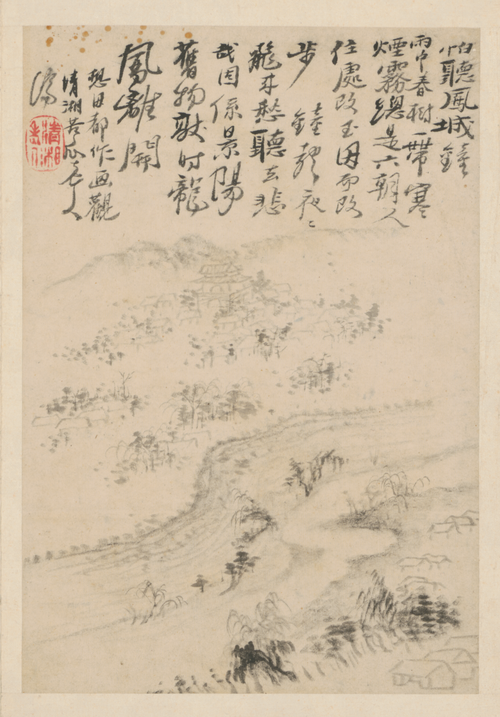 怕聽風城鐘
雨中春樹一帶寒
煙霧總是六朝人
住處改玉因而改
步 鐘聲夜〻
來愁聽去悲
哉因係景陽
舊物獻時龍
鳳離開
想旧都作画觀
清湘苦瓜老人
濟
清湘